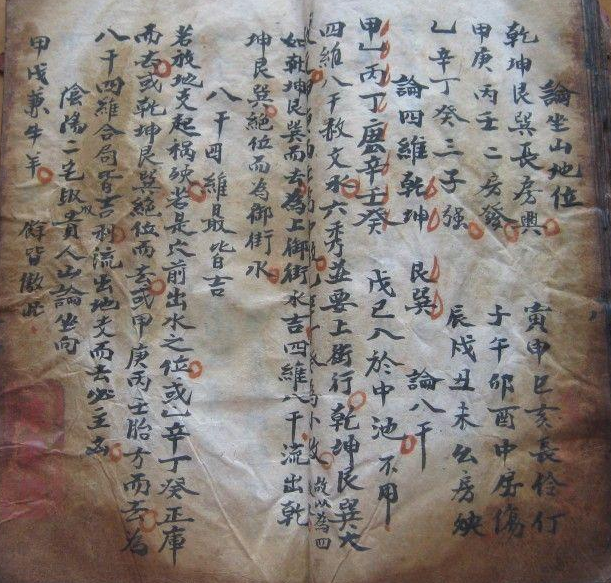 論坐山地位
乾坤艮巽長房興 寅申巳亥長伶仃
甲庚丙壬二房發 子午卯酉中房傷
乙辛丁癸三子强 辰戌丑未公房殃
論四維乾坤艮巽 論八干
甲乙丙丁庚辛壬癸 戊己入於中池不用
四維八干救文水六秀並要上街行乾坤艮巽大
故以為四
如乾坤艮巽而去為上御街水吉四維八干流出乾
坤艮巽絕位而為御街水
八干四維最皆吉
若放地支起禍殃若是穴前出水之位或乙辛丁癸正庫
而去或乾坤艮巽絕位而去或甲庚丙壬胎方而去為
八干四維合局皆吉利流出地支而去必主凶
陰陽二宅取貴人山論坐向
甲戊兼牛羊 餘皆倣此